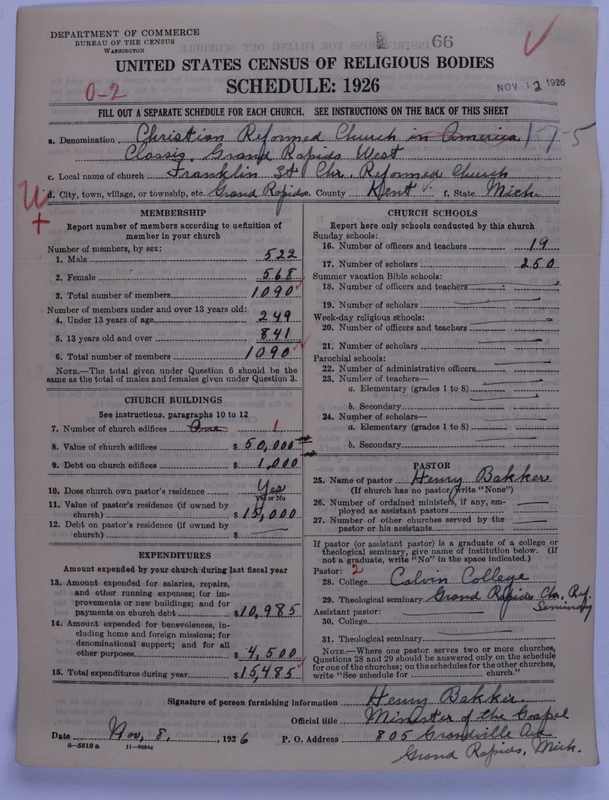 DEPARTMENT OF COMMERCE
BUREAU OF THE CENSUS
WASHINGTON
66
UNITED STATES CENSUS OF RELIGIOUS BODIES
SCHEDULE: 1926
NOV 12 1926
0-2
FILL OUT A SEPARATE SCHEDULE FOR EACH CHURCH. SEE INSTRUCTIONS ON THE BACK OF THIS SHEET
a. Denomination Christian Reformed Church in America 1-7-5
Classis, Grand Rapids West
c. Local name of church Franklin St Chr. Reformed Church
d. City, town, village, or township, etc. Grand Rapids e. County Kent f. State Mich.
MEMBERSHIP
Report number of members according to definition of
member in your church
Number of members, by sex:
1. Male 522
2. Female 568
3. Total number of members 1090
Number of members under and over 13 years old:
4. Under 13 years of age 249
5. 13 years old and over 841
6. Total number of members 1090
NOTE.—The total given under Question 6 should be the
same as the total of males and females given under Question 3.
CHURCH BUILDINGS
See instructions, paragraphs 10 to 12
7. Number of church edifices One 1
8. Value of church edifices $ 50,000
9. Debt on church edifices $ 1,000
10. Does church own pastor's residence Yes
Yes or No
11. Value of pastor's residence (if owned by
church) $ 15,000
12. Debt on pastor's residence (if owned by
church) $
EXPENDITURES
Amount expended by your church during last fiscal year
13. Amount expended for salaries, repairs,
and other running expenses; for im-
provements or new buildings; and for
payments on church debt $10,985
14. Amount expended for benevolences, in-
cluding home and foreign missions; for
denominational support; and for all
other purposes $ 4,500
15. Total expenditures during year $15,485
CHURCH SCHOOLS
Report here only schools conducted by this church
Sunday schools:
16. Number of officers and teachers 19
17. Number of scholars 250
Summer vacation Bible schools:
18. Number of officers and teachers
19. Number of scholars
Week-day religious schools:
20. Number of officers and teachers
21. Number of scholars
Parochial schools:
22. Number of administrative officers
23. Number of teachers—
a. Elementary (grades 1 to 8)
b. Secondary
24. Number of scholars—
a. Elementary (grades 1 to 8)
b. Secondary
PASTOR
25. Name of pastor Henry Bakker
(If church has no pastor, write "None")
26. Number of ordained ministers, if any, em-
ployed as assistant pastors
27. Number of other churches served by the
pastor or his assistants
If pastor (or assistant pastor) is a graduate of a college or
theological seminary, give name of institution below. (If
not a graduate, write "No" in the space indicated.)
Pastor: 2
28. College Calvin College
29. Theological seminary Grand Rapids Chr. Ref.
Seminary
Assistant pastor:
30. College
31. Theological seminary
NOTE.—Where one pastor serves two or more churches,
Questions 28 and 29 should be answered only on the schedule
for one of the churches; on the schedules for the other churches,
write "See schedule for church."
Signature of person furnishing information Henry Bakker
Official title Minister of the Gospel
Date Nov. 8, 1926 P. O. Address 805 Grandville Ave
Grand Rapids, Mich.
8—5518 a